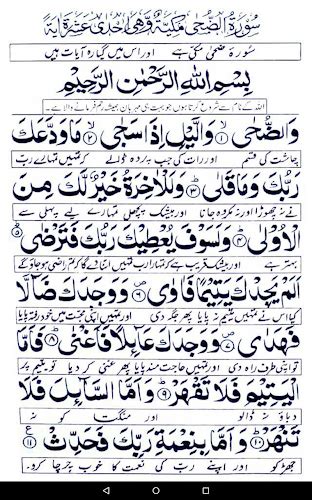 سُوْرَةُ الضُّحٰى مَكِّيَّةٌ وَّهِيَ اِحْدٰى عَشْرَةَ اٰيَةً
سورۃ ضحی مکی ہے اور اس میں گیارہ آیات ہیں
بِسْمِ اللهِ الرَّحْمٰنِ الرَّحِيْمِ
اللہ کے نام سے شروع کرتا ہوں جو بہت ہی مہربان ہمیشہ رحم فرمانے والا ہے۔
وَالضُّحٰى ۙ۱ وَالَّيْلِ اِذَا سَجٰى ۙ۲ مَا وَدَّعَكَ
چاشت کی قسم اور رات کی جب پردہ ڈالے کہ تمہیں تمہارے رب
رَبُّكَ وَمَا قَلٰى ؕ۳ وَلَلْاٰخِرَةُ خَيْرٌ لَّكَ مِنَ
نے نہ چھوڑا اور نہ مکروہ جانا اور بیشک پچھلی تمہارے لیے پہلی سے
الْاُوْلٰى ؕ۴ وَلَسَوْفَ يُعْطِيْكَ رَبُّكَ فَتَرْضٰى ؕ۵
بہتر ہے اور بیشک قریب ہے کہ تمہارا رب تمہیں اتنا دے گا کہ تم راضی ہو جاؤ گے
اَلَمْ يَجِدْكَ يَتِيْمًا فَاٰوٰى ۪۶ وَوَجَدَكَ ضَآلًّا
کیا اس نے تمہیں یتیم نہ پایا پھر جگہ دی اور تمہیں اپنی محبت میں خود رفتہ پایا
فَهَدٰى ۪۷ وَوَجَدَكَ عَآئِلًا فَاَغْنٰى ؕ۸ فَاَمَّا
تو اپنی طرف راہ دی اور تمہیں حاجت مند پایا پھر غنی کر دیا تو یتیم پر
الْيَتِيْمَ فَلَا تَقْهَرْ ؕ۹ وَاَمَّا السَّآئِلَ فَلَا
دباؤ نہ ڈالو اور منگتا کو نہ
تَنْهَرْ ؕ۱۰ وَاَمَّا بِنِعْمَةِ رَبِّكَ فَحَدِّثْ ۱۱ ع
جھڑکو اور اپنے رب کی نعمت کا خوب چرچا کرو۔